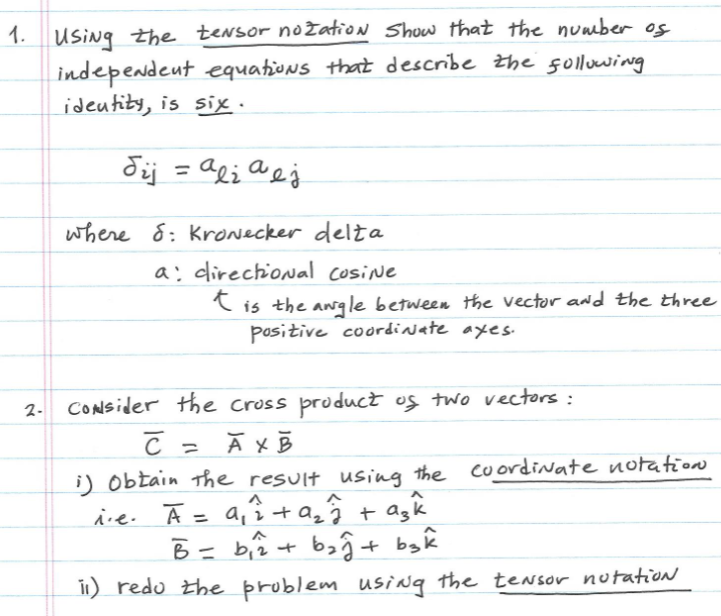 1. Using the tensor notation show that the number of
independent equations that describe the following
identity, is six.
δij = aℓi aℓj
where δ: Kronecker delta
a: directional cosine
↑ is the angle between the vector and the three
positive coordinate axes.
2. Consider the cross product of two vectors:
C̅ = A̅ × B̅
i) Obtain the result using the coordinate notation
i.e. A̅ = a₁î + a₂ĵ + a₃k̂
B̅ = b₁î + b₂ĵ + b₃k̂
ii) redo the problem using the tensor notation